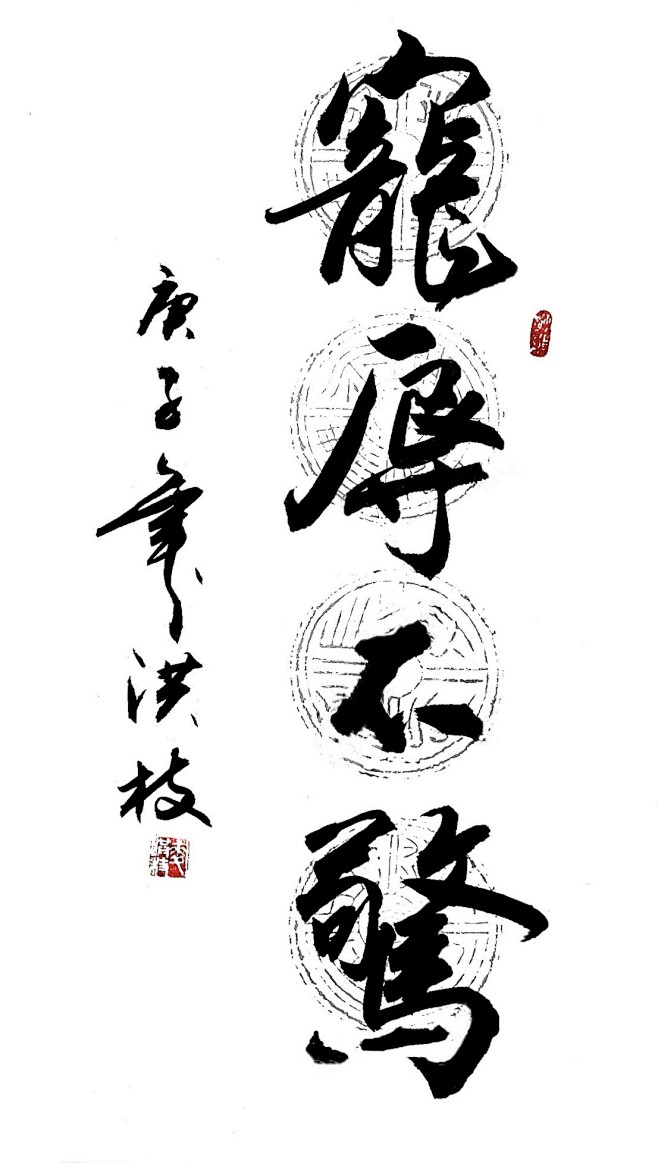 寵辱不驚
庚子年洪枝